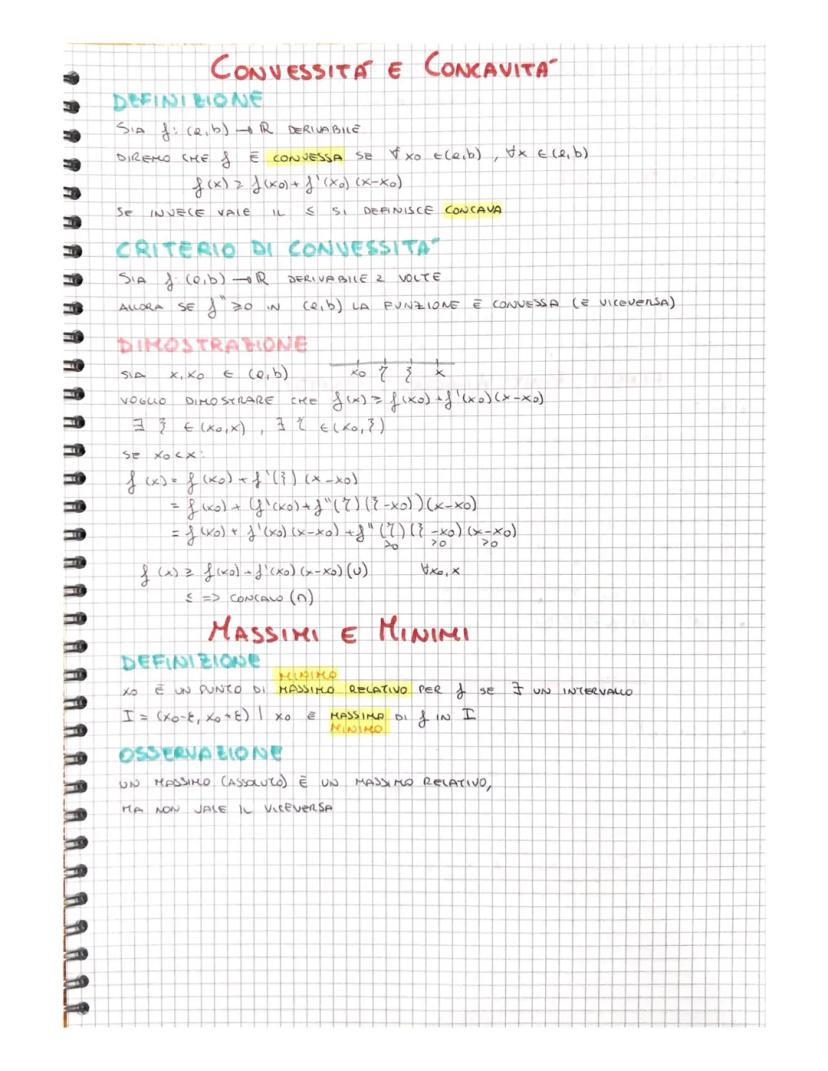 CONVESSITÀ E CONCAVITÀ
DEFINIZIONE
SIA f: (a,b) → ℝ DERIVABILE
DIREMO CHE f È CONVESSA SE ∀ x0 ∈(a,b), ∀x ∈(a,b)
f(x) ≥ f(x0) + f'(x0) (x-x0)
SE INVECE VALE IL ≤ SI DEFINISCE CONCAVA
CRITERIO DI CONVESSITÀ
SIA f: (a,b) → ℝ DERIVABILE 2 VOLTE
ALLORA SE f'' ≥0 IN (a,b) LA FUNZIONE È CONVESSA (E VICEVERSA)
DIMOSTRAZIONE
SIA x, x0 ∈ (a,b) x0 η ξ x
VOGLIO DIMOSTRARE CHE f(x) ≥ f(x0) + f'(x0)(x-x0)
∃ ξ ∈ (x0,x), ∃ η ∈(x0,ξ)
SE x0<x:
f(x) = f(x0) + f'(ξ) (x-x0)
= f(x0) + (f'(x0) + f''(η)(ξ-x0))(x-x0)
= f(x0) + f'(x0)(x-x0) + f''(η)(ξ-x0)(x-x0)
≥0 >0 >0
f(x) ≥ f(x0) + f'(x0)(x-x0)(∪) ∀x0,x
≤ => CONCAVO (∩)
MASSIMI E MINIMI
DEFINIZIONE
MINIMO
x0 È UN PUNTO DI MASSIMO RELATIVO PER f SE ∃ UN INTERVALLO
I = (x0-ε, x0+ε) | x0 È MASSIMO DI f IN I
MINIMO
OSSERVAZIONE
UN MASSIMO (ASSOLUTO) È UN MASSIMO RELATIVO,
MA NON VALE IL VICEVERSA